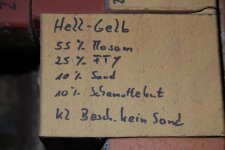 Hell-Gelb
55% Mosam
25% FTY
10% Sand
10% Schamottebut
K2 Besch. kein Sand